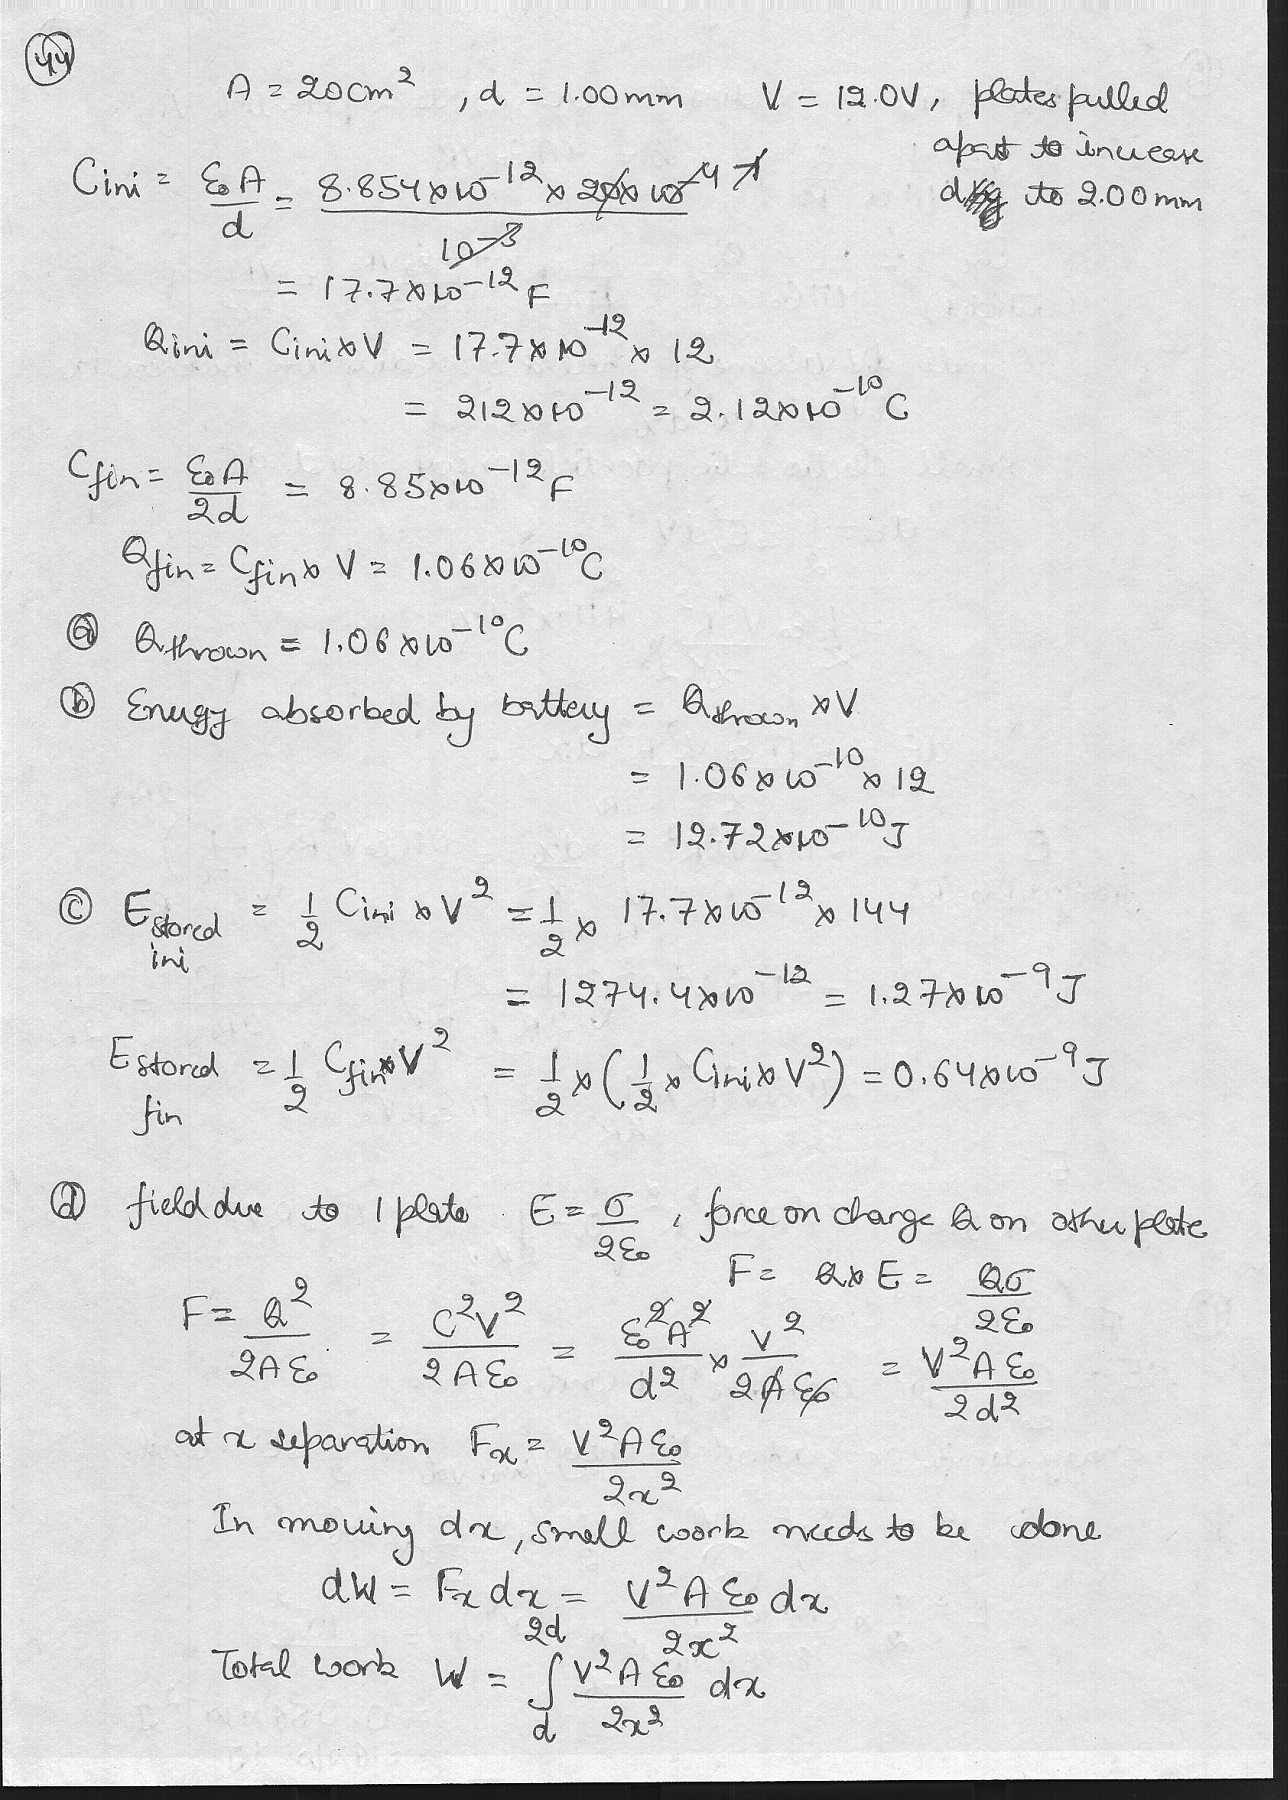 44
A = 20cm², d = 1.00mm V = 12.0V, plates pulled
apart to increase
d to 2.00mm
Cini = ε₀A/d = 8.854×10⁻¹² × 20×10⁻⁴ / 10⁻³
= 17.7×10⁻¹² F
Qini = Cini×V = 17.7×10⁻¹² × 12
= 212×10⁻¹² = 2.12×10⁻¹⁰ C
Cfin = ε₀A/2d = 8.85×10⁻¹² F
Qfin = Cfin × V = 1.06×10⁻¹⁰ C
(a) Qthrown = 1.06×10⁻¹⁰ C
(b) Energy absorbed by battery = Qthrown × V
= 1.06×10⁻¹⁰ × 12
= 12.72×10⁻¹⁰ J
(c) Estored ini = 1/2 Cini × V² = 1/2 × 17.7×10⁻¹² × 144
= 1274.4×10⁻¹² = 1.27×10⁻⁹ J
Estored fin = 1/2 Cfin×V² = 1/2 × (1/2 × Cini × V²) = 0.64×10⁻⁹ J
(d) field due to 1 plate E = σ/2ε₀, force on charge Q on other plate
F = Q×E = Qσ/2ε₀
F = Q²/2Aε₀ = C²V²/2Aε₀ = ε₀²A²/d² × V²/2Aε₀ = V²Aε₀/2d²
at x separation Fx = V²Aε₀/2x²
In moving dx, small work needs to be done
dW = Fx dx = V²Aε₀/2x² dx
Total work W = ∫_d^2d V²Aε₀/2x² dx